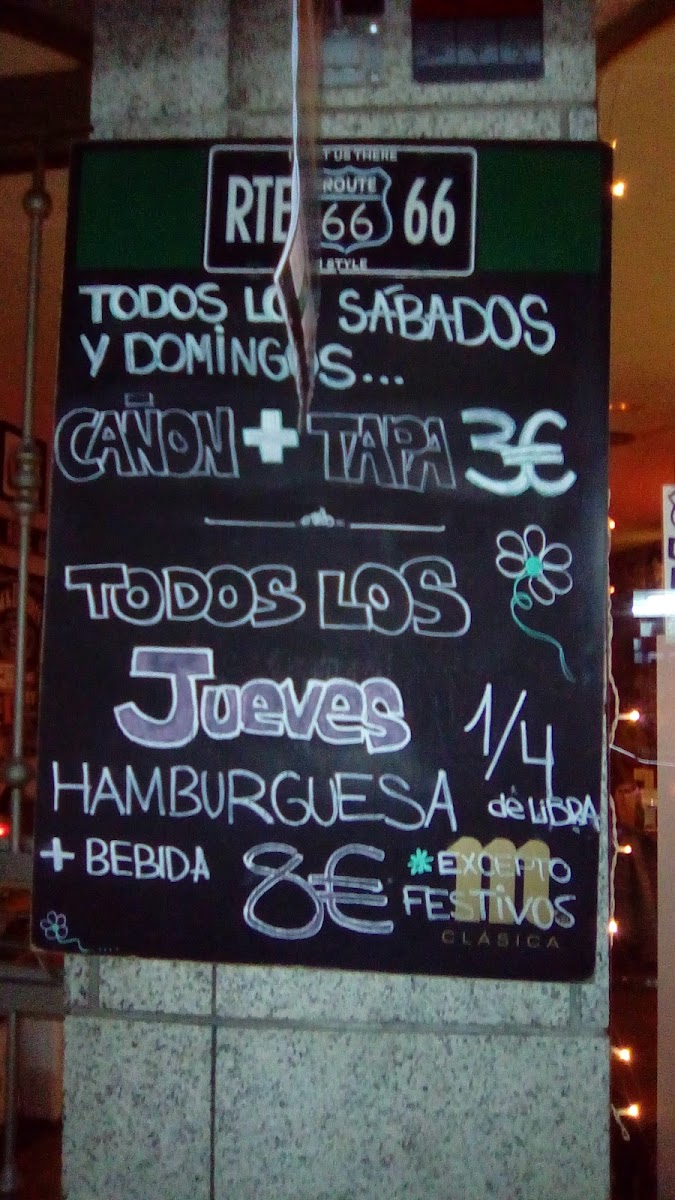 US THERE
RTE ROUTE 66 66
STYLE
TODOS SÁBADOS
Y DOMINGOS...
CAÑON + TAPA 3€
TODOS LOS
JUEVES
1/4
HAMBURGUESA de LIBRA
+ BEBIDA 8€ * EXCEPTO
FESTIVOS
CLÁSICA